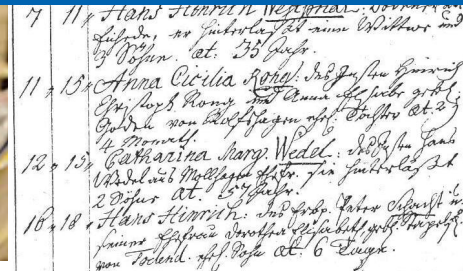 7 11, Hans Hinrich Westphal.
er hinterläßt eine Wittwe und
3 Söhne. at. 35 Jahr.
11, 15, Anna Cicilia Rong: des Insten Hinrich
Christoph Rong und Anna Elisabe gebl.
Goden von ehel. Tochter at. 2
4 Monath.
12, 15, Catharina Marg. Wedel. des Insten Hans
Wedel aus Mollhagen Ehefr. sie hinterläßt
2 Söhne at. 57 Jahr.
16, 18, Hans Hinrich: des Erbp. Peter Schacht u.
seiner Ehefrau Dorothea Elisabeth gebl.
von Todend. ehel. Sohn at. 6 Tage.